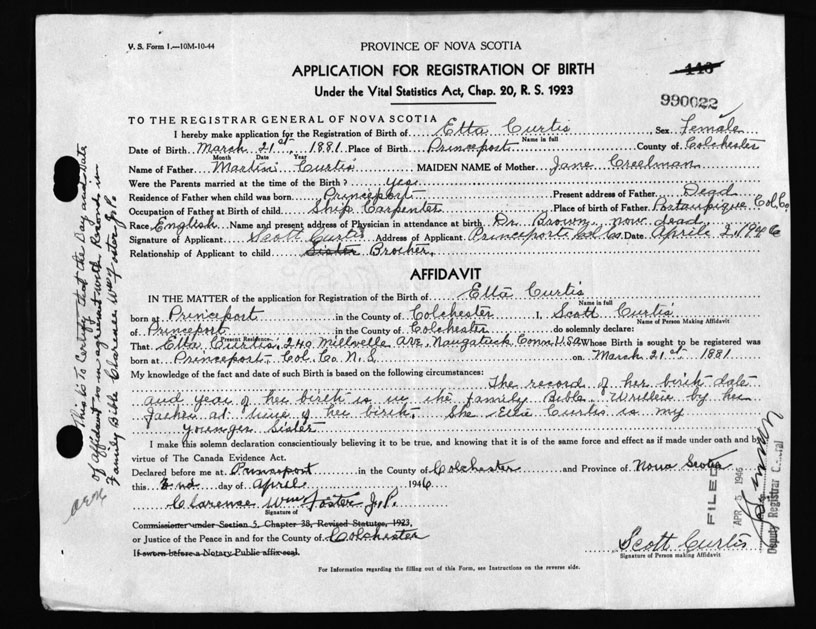 V. S. Form 1.—10M-10-44
PROVINCE OF NOVA SCOTIA
APPLICATION FOR REGISTRATION OF BIRTH
Under the Vital Statistics Act, Chap. 20, R. S. 1923
990022
TO THE REGISTRAR GENERAL OF NOVA SCOTIA
I hereby make application for the Registration of Birth of Etta Curtis, Sex Female
Name in full
Date of Birth March 21st, 1881 Place of Birth Princeport County of Colchester
Month Date Year
Name of Father Martin Curtis MAIDEN NAME of Mother Jane Creelman
Were the Parents married at the time of the Birth? Yes
Residence of Father when child was born Princeport Present address of Father Dead
Occupation of Father at Birth of child Ship Carpenter Place of birth of Father Portaupique Col. Co.
Race English Name and present address of Physician in attendance at birth Dr. Brown, now dead
Signature of Applicant Scott Curtis Address of Applicant Princeport Col Co. Date April 2, 1946
Relationship of Applicant to child Sister Brother
AFFIDAVIT
IN THE MATTER of the application for Registration of the Birth of Etta Curtis
Name in full
born at Princeport in the County of Colchester I, Scott Curtis
Name of Person Making Affidavit
of Princeport in the County of Colchester do solemnly declare:
Present Residence.
That Etta Curtis, 240 Millville Ave, Naugatuck Conn U.S.A Whose Birth is sought to be registered was
born at Princeport, Col. Co N. S. on March 21st 1881
My knowledge of the fact and date of such Birth is based on the following circumstances:
The record of her birth date
and year of her birth is in the family Bible. Written by her
Father at time of her birth. She Etta Curtis is my
younger Sister
I make this solemn declaration conscientiously believing it to be true, and knowing that it is of the same force and effect as if made under oath and by
virtue of The Canada Evidence Act.
Declared before me at Princeport in the County of Colchester and Province of Nova Scotia
this 2nd day of April 1946
Clarence Wm Foster J.P.
Signature of
Commissioner under Section 5, Chapter 38, Revised Statutes, 1923,
or Justice of the Peace in and for the County of Colchester
If sworn before a Notary Public affix seal.
Scott Curtis
Signature of Person making Affidavit
For Information regarding the filling out of this Form, see Instructions on the reverse side.
This is to Certify that the Day and Date
of affidavit is in agreement with Record in
Family Bible Clarence Wm Foster J.P.
FILED
APR 5 1946
Deputy Registrar General